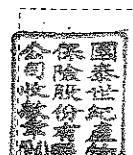 國泰世紀產
保險股份有
公司收